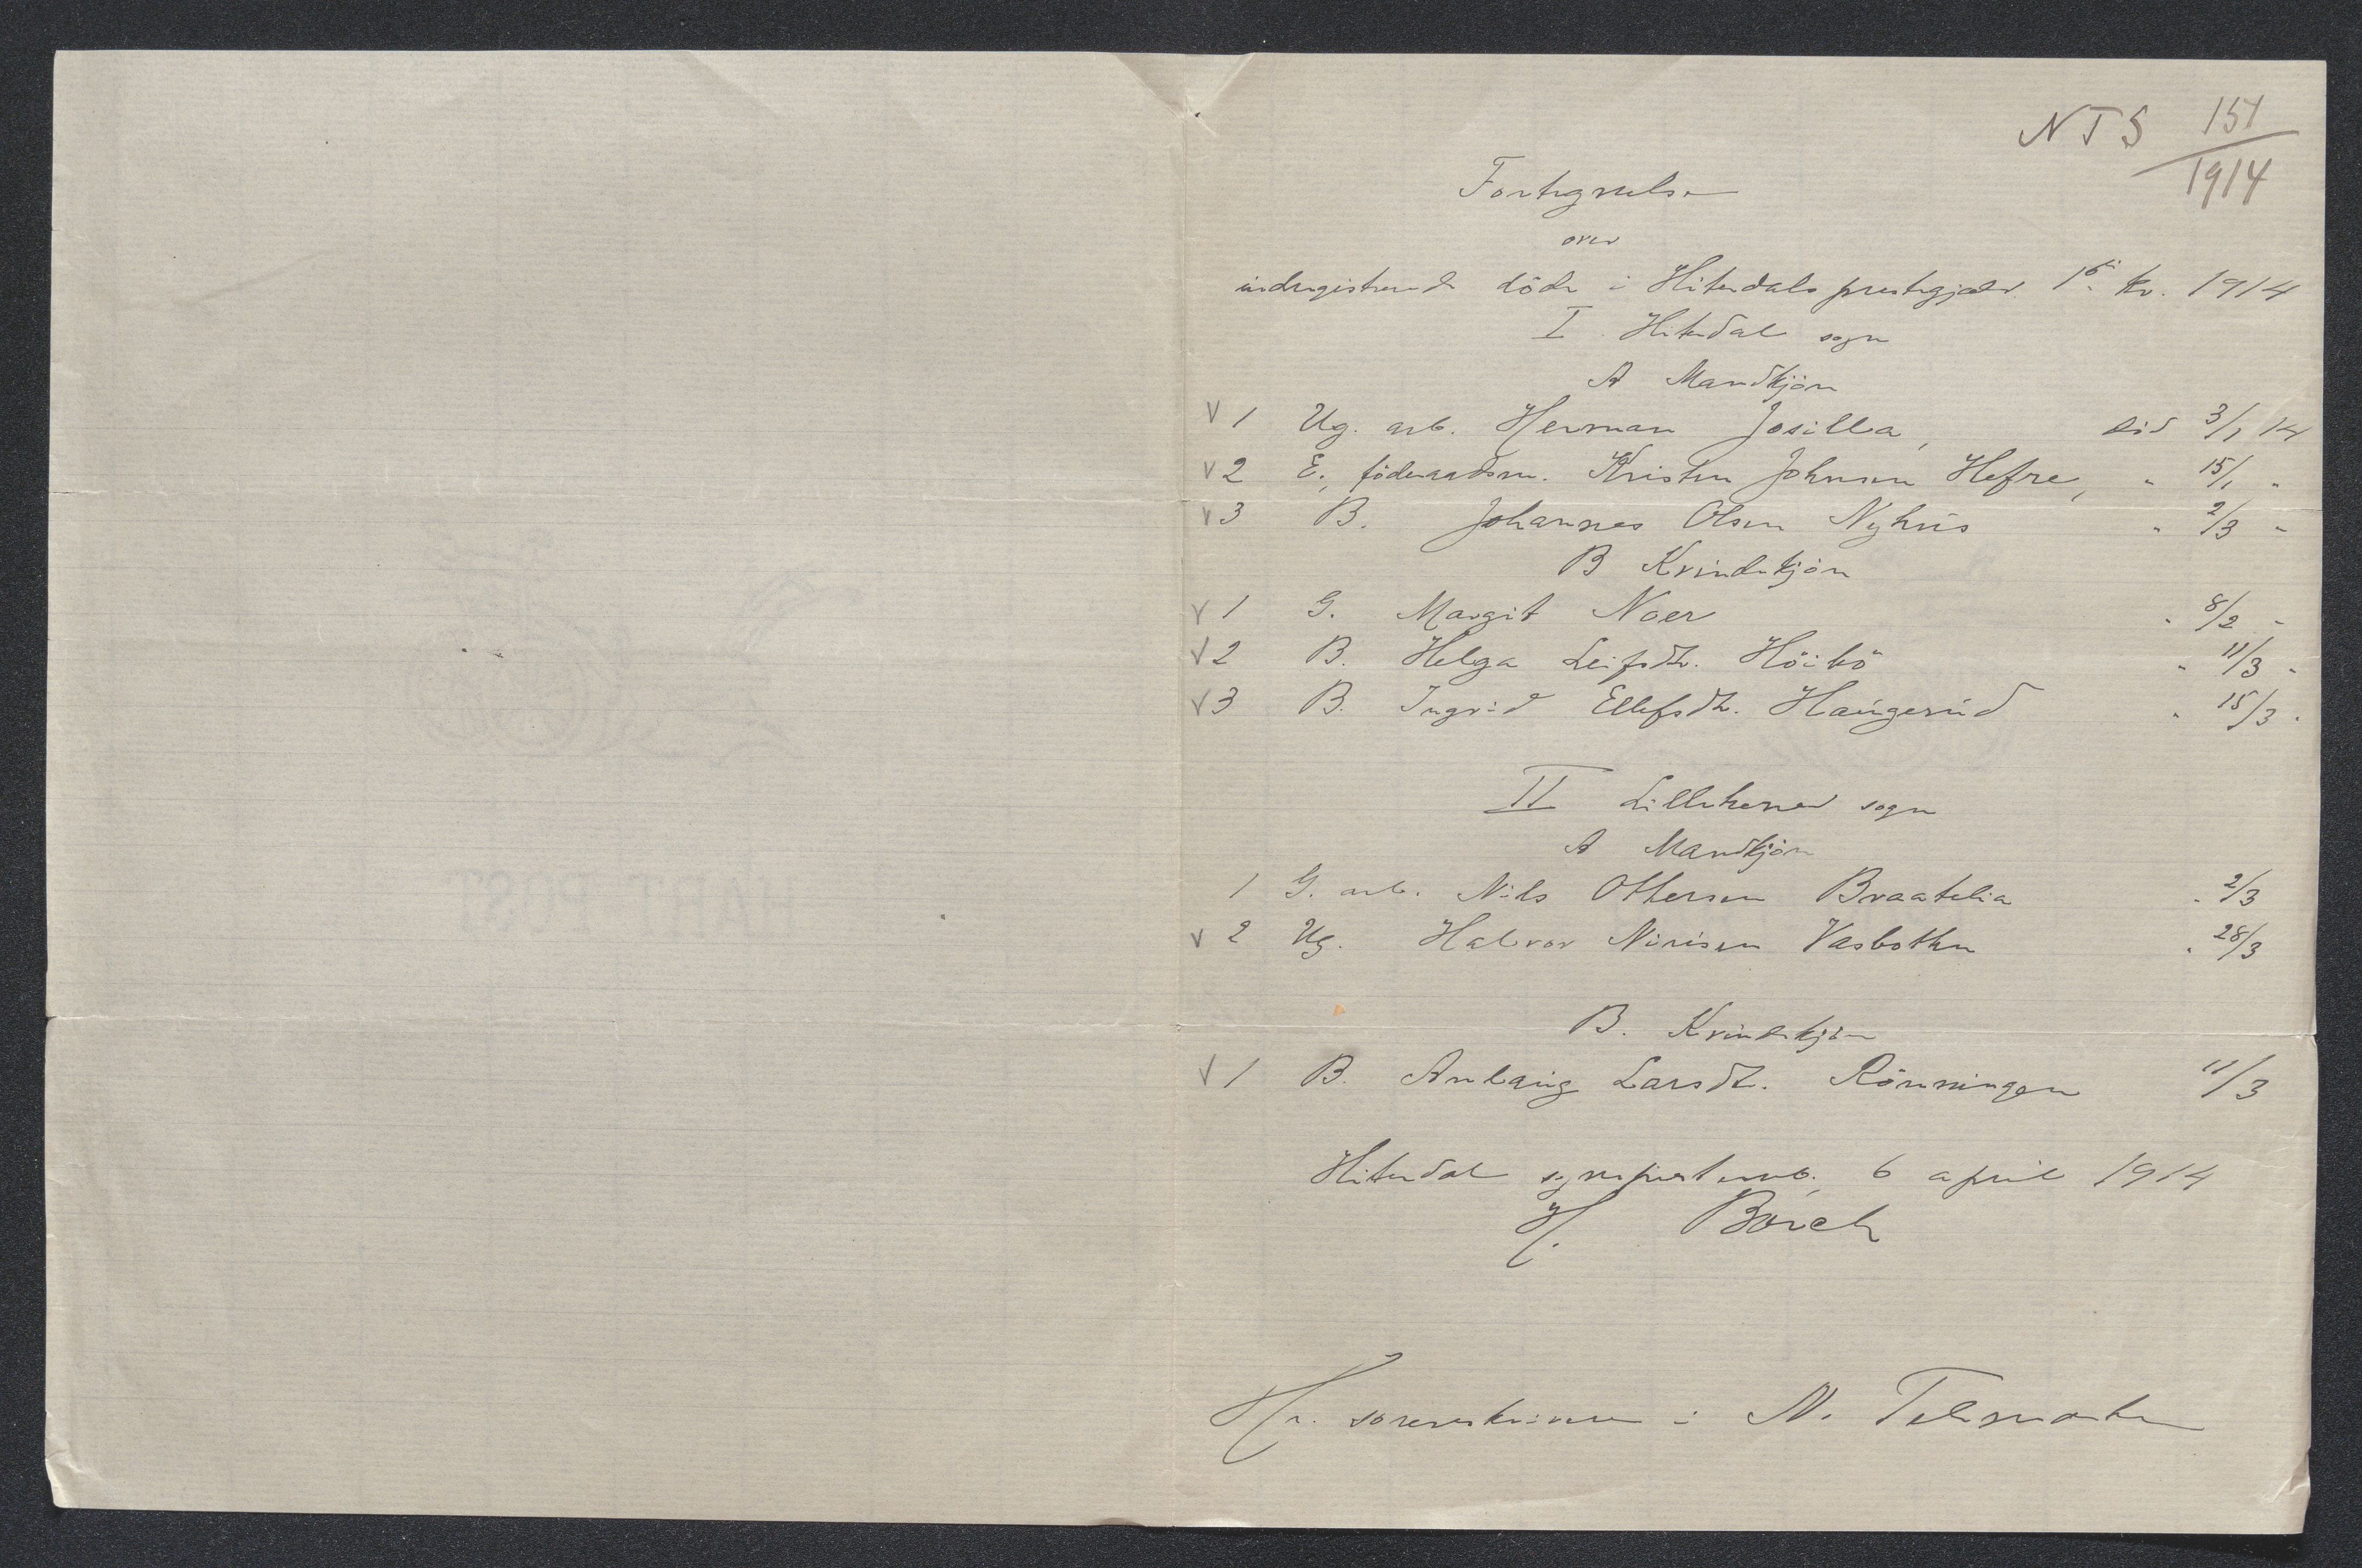 NTS 151/1914
Fortegnelse
over
indregistrerede döde i Hiterdals prestegjeld 1ste kv. 1914
I Hiterdal sogn
A Mandkjön
V 1 Ug. arb. Herman Josilla, död 3/1 14
V 2 E., föderaadsm. Kristen Johnsen Hefre, " 15/1 "
V 3 B. Johannes Olsen Nyhus " 2/3 "
B Kvindekjön
V 1 G. Margit Noer " 8/2 "
V 2 B. Helga Leifsdt. Höibö " 11/3 "
V 3 B. Ingrid Ellefsdt. Haugerud " 15/3 "
II Lilleherred sogn
A Mandkjön
1 G. arb. Nils Ottersen Braatelia " 2/3
V 2 Ug. Halvor Nirisen Vasbotten " 28/3
B. Kvindekjön
V 1 B. Anlaug Larsdt. Rönningen 11/3
Hiterdal sogneprestemb. 6 april 1914
H. Borch
Hr. sorenskriveren i N. Telemarken
HART POST